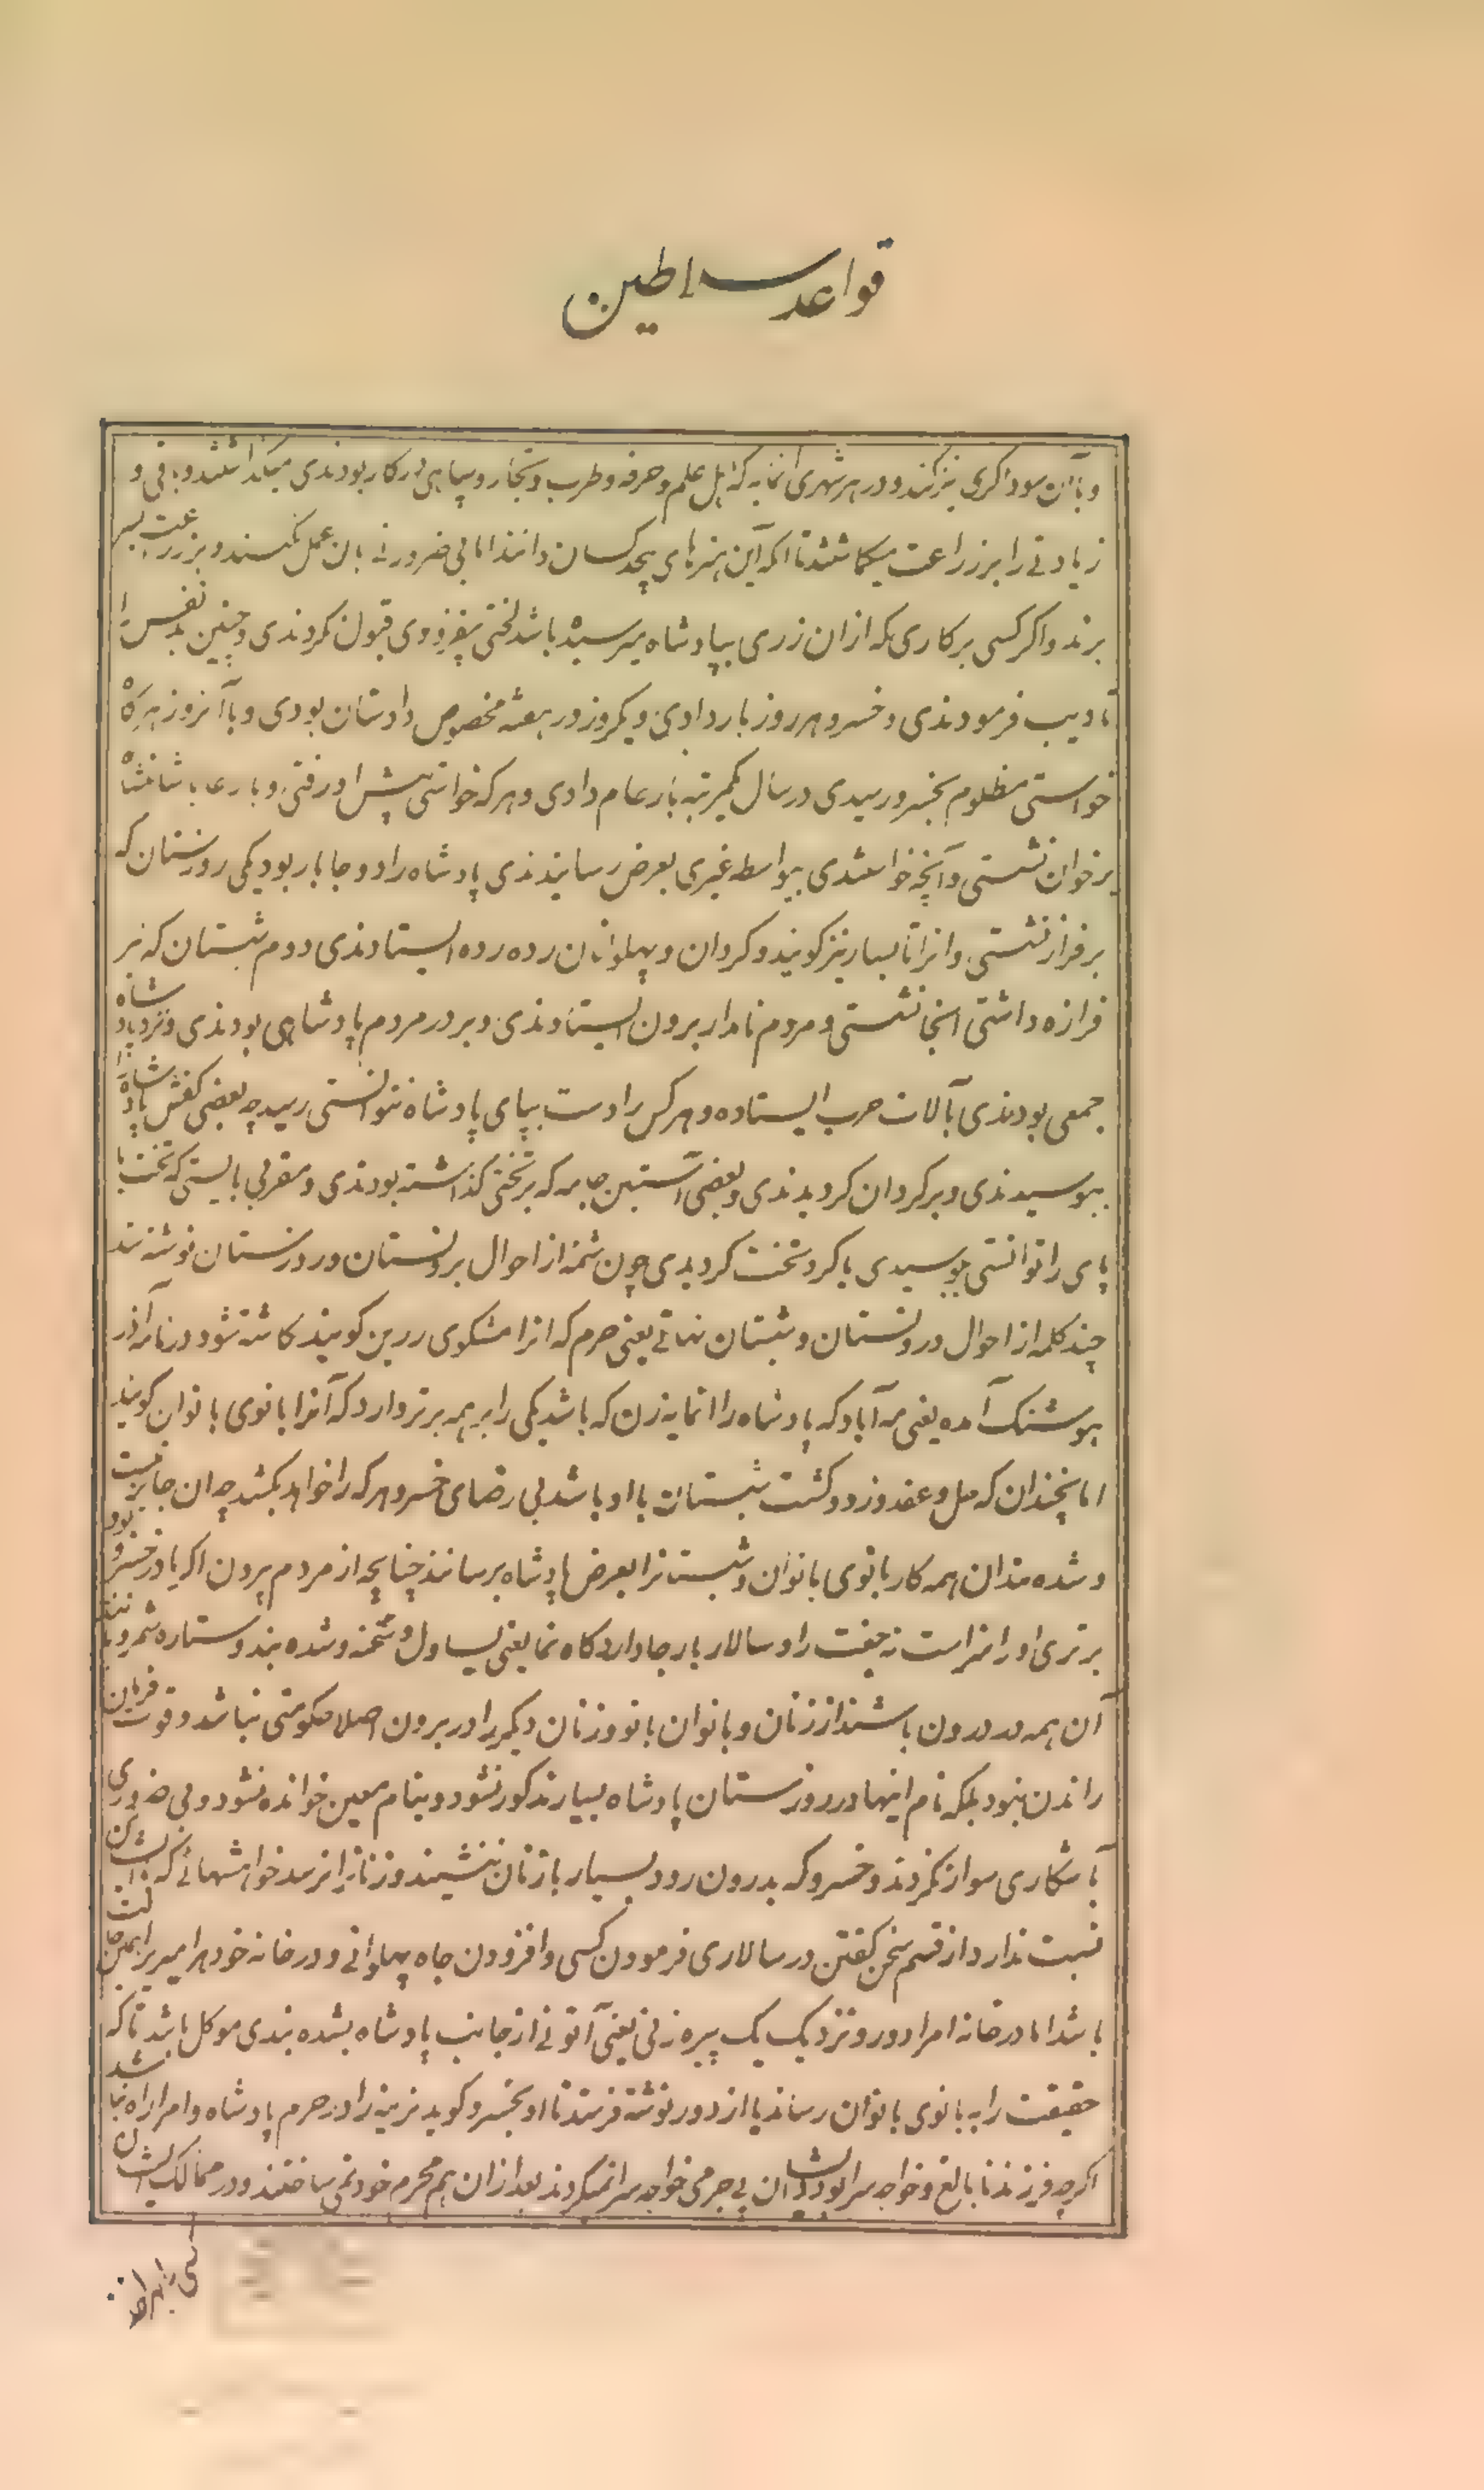 قواعد سلاطین
و بآن سوداگری نیز کنند و در هر شهری انمایه که اهل علم و حرفه و طرب و تجار و سپاهی در کار بودندی میگذاشتند و باقی و
زیادتی را بزراعت میگماشتند تا اگر این هنرهای بیحد کسان دانند اما بی ضرورتی بان عمل نکنند و بزراعت بسر
برند و اگر کسی بر کاری که از ان زری بپادشاه میرسیده باشد لختی بیفزودی قبول نکردندی و چنین بد نفس را
تادیب فرمودندی و خسرو هر روز بار دادی و یکروز در هفته مخصوص دادستان بودی و بآنروز هر که
خواستی مظلوم بخسرو رسیدی در سال یکمرتبه بار عام دادی و هر که خواستی پیش او رفتی و با رعایا شاهنشاه
بر خوان نشستی و آنچه خواستندی بیواسطه غیری بعرض رسانیدندی پادشاه را دو جا بار بود یکی روزستان که
بر فراز نشستی و انرا تابسار نیز گویند و گردان و پهلوانان رده رده ایستادندی دوم شبستان که نیز
فرازه داشتی انجا نشستی و مردم نامدار برون ایستادندی و بر در مردم پادشاهی بودندی و نزد پادشاه
جمعی بودندی بآلات حرب ایستاده و هر کس را دست بپای پادشاه نتوانستی رسید چه بعضی کفش پادشاه را
ببوسیدندی و بر گردان گردیدندی و بعضی آستین جامه که بر تختی گذاشته بودندی و مقربی بایستی که تخت یا
پای را توانستی بوسیدی یا گرد تخت گردیدی چون شمه از احوال برونستان و روزستان نوشته شد
چند کلمه از احوال درونستان و شبستان نهانی یعنی حرم که انرا مشکوی زرین گویند نگاشته شود در نامه آذر
هوشنگ آمده یعنی مه آباد که پادشاه را انمایه زن که باشد یکی را بر همه برتر دارد که آنرا بانوی بانوان گویند
اما نچندان که حل و عقد و زد و کشت شبستان با او باشد بی رضای خسرو هر که را خواهد بکشد چه ان جایز نیست
و شده بندان همه کار بانوی بانوان و شبستانرا بعرض پادشاه برسانند چنانچه از مردم برون اگر مادر خسرو بود
برتری او را سزاست نه جفت را و سالار بار جادار و گاه نما یعنی یساول و شحنه و شده بند و ستاره شمر و مانند
آن همه در درون باشند از زنان و بانوان بانو و زنان دیگر را در برون اصلا حکومتی نباشد و قوت فرمان
راندن نبود بلکه نام اینها در روزستان پادشاه بسیار مذکور نشود و بنام معین خوانده نشود و بی ضروری
بآشکاری سوار نگردند و خسرو که بدرون رود بسیار با زنان ننشیند و زنانرا نرسد خواهشهائی که بدیشان
نسبت ندارد از قسم سخن گفتن در سالاری فرمودن کسی و افزودن جاه پهلوانی و در خانه خود هر امیر را همین حالت
باشد اما در خانه امرا دور و نزدیک یک پیره زنی یعنی آتونی از جانب پادشاه بشده بندی موکل باشد تا که
حقیقت را به بانوی بانوان رساند یا از دور نوشته فرستد تا او بخسرو گوید نرینه را در حرم پادشاه و امرا راه نباشد
اگرچه فرزند نابالغ و خواجه سرا بود ایشان بی جرمی خواجه سرا نمیکردند بعد از ان هم محرم خود نمی ساختند و در ممالک ایشان
کسی را